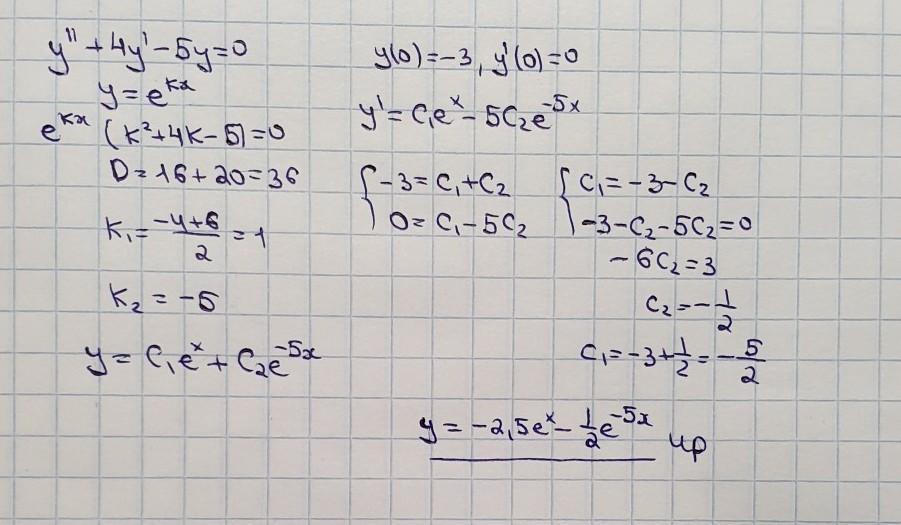 y'' + 4y' − 5y = 0
y = e^{kx}
e^{kx} (k² + 4k − 5) = 0
D = 16 + 20 = 36
k₁ = \frac{−4+6}{2} = 1
k₂ = −5
y = C₁e^x + C₂e^{−5x}
y(0) = −3, y'(0) = 0
y' = C₁e^x − 5C₂e^{−5x}
{ −3 = C₁ + C₂ { C₁ = −3 − C₂
0 = C₁ − 5C₂ −3 − C₂ − 5C₂ = 0
−6C₂ = 3
C₂ = −\frac{1}{2}
C₁ = −3 + \frac{1}{2} = −\frac{5}{2}
y = −2,5e^x − \frac{1}{2}e^{−5x} чр